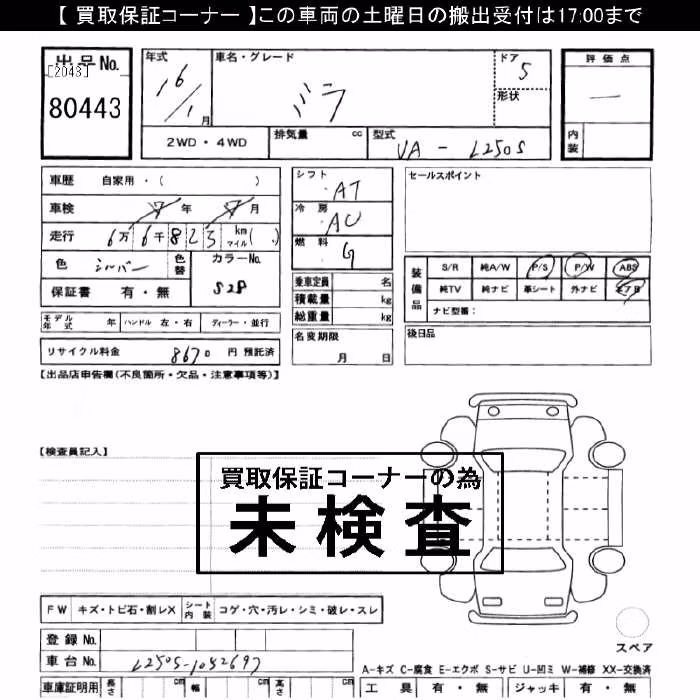 【 買取保証コーナー 】この車両の土曜日の搬出受付は17:00まで
出品No.
[2043]
80443
年式
16/1月
車名・グレード
ミラ
ドア
5
形状
評価点
―
内装
2WD・4WD
排気量 cc
型式
UA - L250S
車歴 自家用・( )
車検 年 月
走行 6万6千823 km マイル( )
色 シルバー 色替
カラーNo.
S28
保証書 有・無
シフト
AT
冷房
AC
燃料
G
セールスポイント
乗車定員 名
積載量 kg
総重量 kg
装備品
S/R 純A/W P/S P/W ABS
純TV 純ナビ 革シート 外ナビ エアB
ナビ型番:
モデル年式 年 ハンドル 左・右 ディーラー・並行
名変期限
月 日
後日品
リサイクル料金 8670 円 預託済
【出品店申告欄(不良箇所・欠品・注意事項等)】
【検査員記入】
買取保証コーナーの為
未検査
FW キズ・トビ石・割レX シート内装 コゲ・穴・汚レ・シミ・破レ・スレ
スペア
登録No.
車台No. L250S-1052697
A-キズ C-腐食 E-エクボ S-サビ U-凹ミ W-補修 XX-交換済
車庫証明用 長さ cm 幅 cm 高さ cm
工具 有・無 ジャッキ 有・無